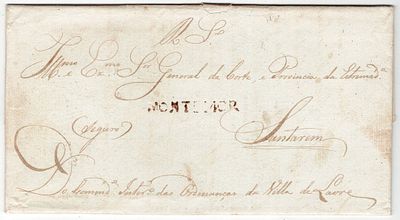 A S.
Illmo e Exmo Sñr General da Corte, e Provincia da Estremad.ª
MONTEMOR
(Seguro)
Santarem
Do Command.e Inter.º das Ordenanças da Villa de Lavre